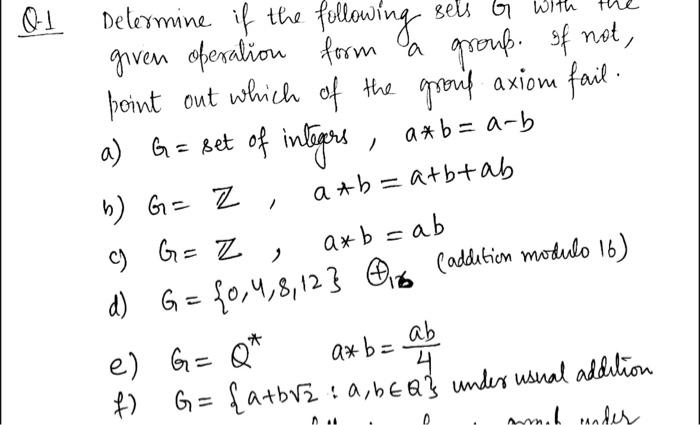 Q.1 Determine if the following sets G with the
given operation form a group. If not,
point out which of the group axiom fail.
a) G = set of integers, a*b = a-b
b) G = ℤ, a*b = a+b+ab
c) G = ℤ, a*b = ab
d) G = {0,4,8,12} ⊕₁₆ (addition modulo 16)
e) G = Q* a*b = ab/4
f) G = {a+b√2 : a,b∈Q} under usual addition
under